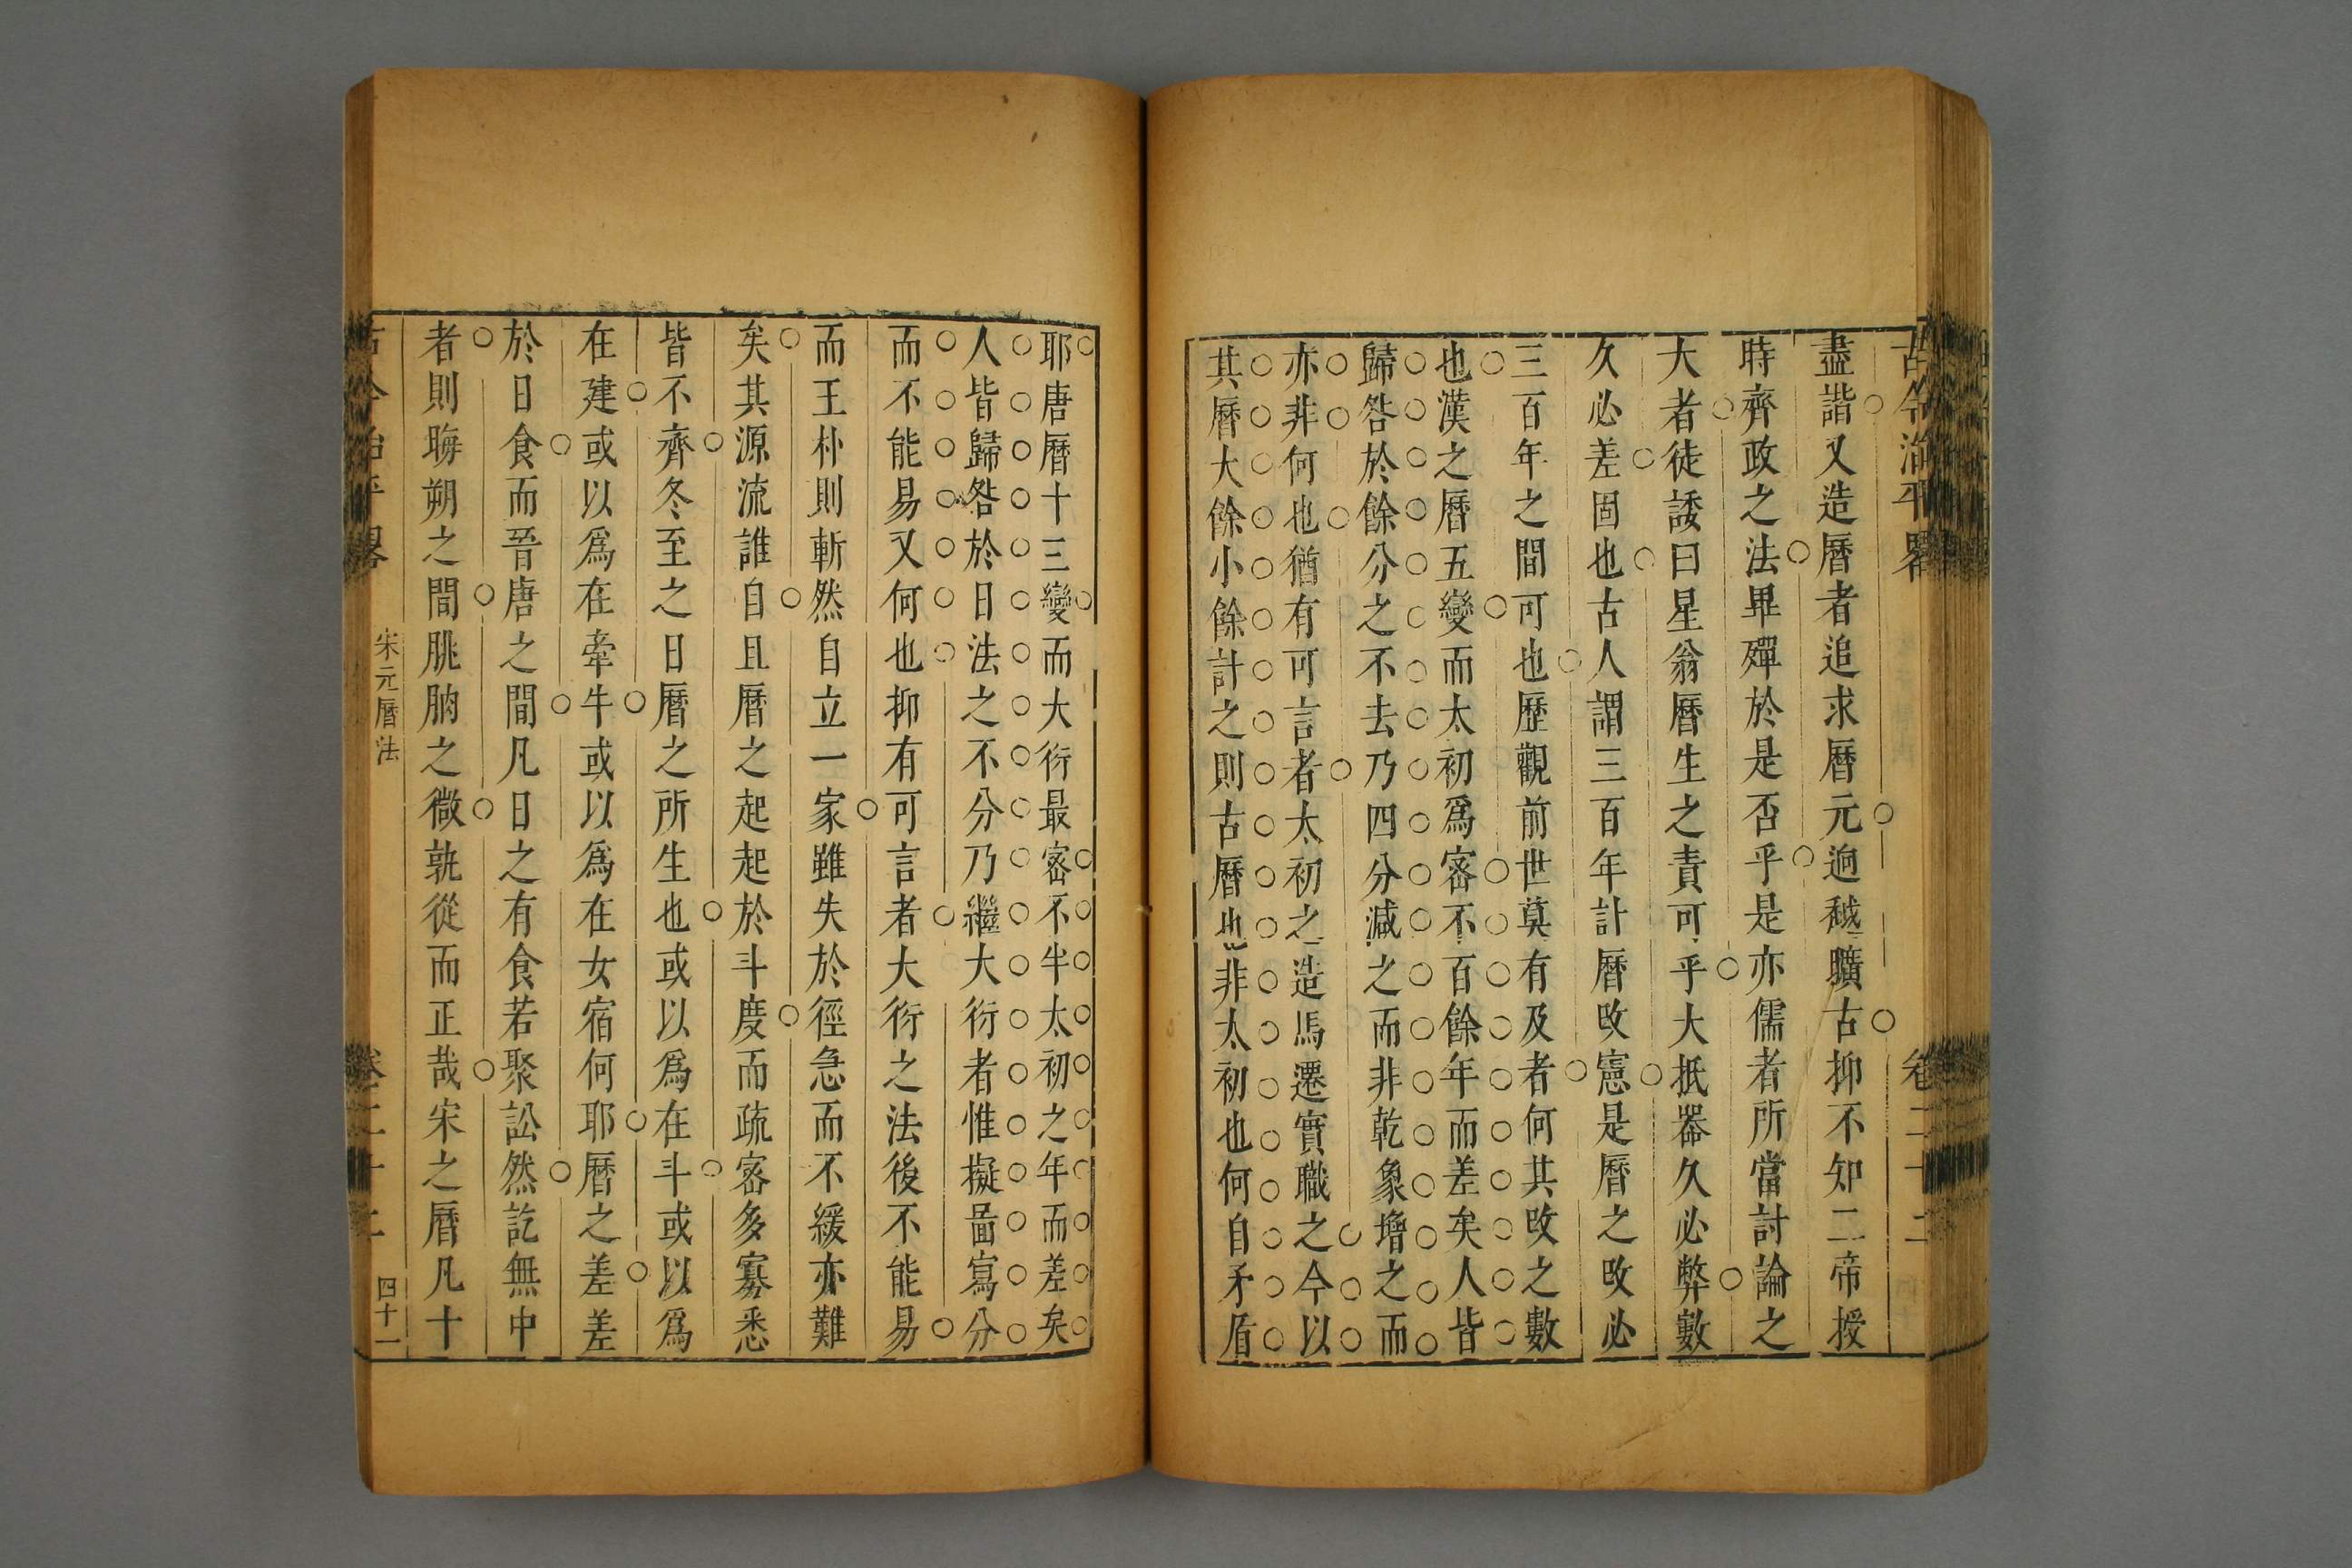 古今治平畧 卷二十二
盡諧又造曆者追求曆元逈越曠古抑不知二帝授
時齊政之法畢殫於是否乎是亦儒者所當討論之
大者徒諉曰星翁曆生之責可乎大抵器久必弊數
久必差固也古人謂三百年計曆攺憲是曆之攺必
三百年之間可也歷觀前世莫有及者何其攺之數
也漢之曆五變而太初爲宻不百餘年而差矣人皆
歸咎於餘分之不去乃四分减之而非乾象增之而
亦非何也猶有可言者太初之造馬遷實職之今以
其曆大餘小餘計之則古曆也非太初也何自矛盾
耶唐曆十三變而大衍最宻不半太初之年而差矣
人皆歸咎於日法之不分乃繼大衍者惟擬啚寫分
而不能易又何也抑有可言者大衍之法後不能易
而王朴則斬然自立一家雖失於徑急而不緩亦難
矣其源流誰自且曆之起起於斗度而疏宻多寡悉
皆不齊冬至之日曆之所生也或以爲在斗或以爲
在建或以爲在牽牛或以爲在女宿何耶曆之差差
於日食而晉唐之間凡日之有食若聚訟然訖無中
者則晦朔之間朓朒之微孰從而正哉宋之曆凡十
古今治平畧 宋元曆法 卷二十二 四十一